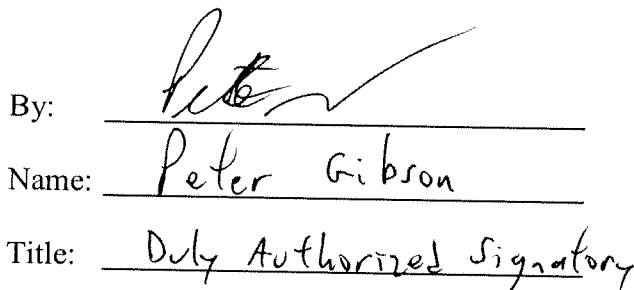 By: Peter
Name: Peter Gibson
Title: Duly Authorized Signatory